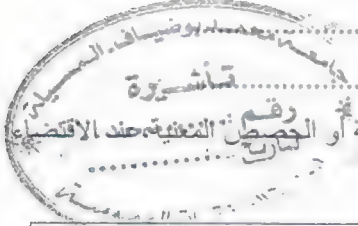 جامعة محمد بوضياف المسيلة
تأشيرة
رقم
ة أو الحصص التقنية عند الاقتضاء
تاريخ